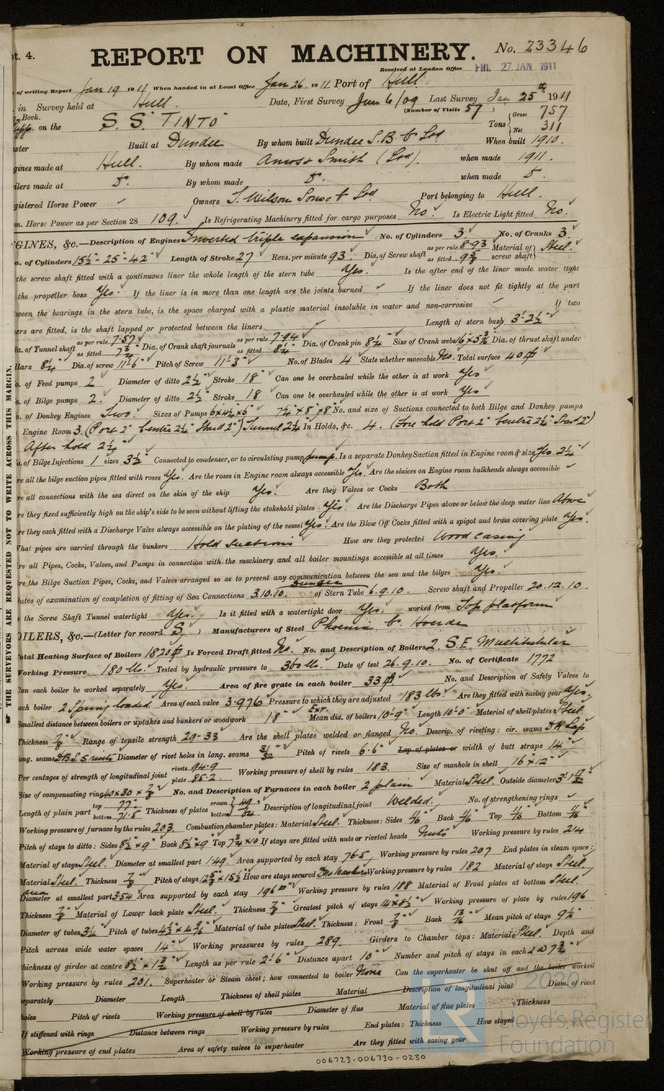 pt. 4.
REPORT ON MACHINERY. No. 23346
Received at London Office FRI. 27 JAN 1911
of writing Report Jan 19 1911 When handed in at Local Office Jan 26 1911 Port of Hull.
in Survey held at Hull. Date, First Survey Jun 6/09 Last Survey Jan 25th 1911
Book. (Number of Visits 57)
on the S.S. "TINTO" Tons Gross 757 Net 311
Built at Dundee By whom built Dundee S.B. Co Ltd When built 1910.
gines made at Hull. By whom made Amos & Smith (Ltd). when made 1911.
oilers made at Do. By whom made Do. when made Do.
gistered Horse Power Owners T. Wilson Sons & Co Ltd Port belonging to Hull.
m. Horse Power as per Section 28 109. Is Refrigerating Machinery fitted for cargo purposes No. Is Electric Light fitted No.
GINES, &c.—Description of Engines Inverted triple expansion No. of Cylinders 3 No. of Cranks 3.
a. of Cylinders 15½-25-42 Length of Stroke 27 Revs. per minute 93. Dia. of Screw shaft as per rule 8.93 as fitted 9⅜ Material of screw shaft Steel.
the screw shaft fitted with a continuous liner the whole length of the stern tube Yes. Is the after end of the liner made water tight
the propeller boss Yes. If the liner is in more than one length are the joints burned If the liner does not fit tightly at the part
ween the bearings in the stern tube, is the space charged with a plastic material insoluble in water and non-corrosive If two
ers are fitted, is the shaft lapped or protected between the liners Length of stern bush 3'-2½"
a. of Tunnel shaft as per rule 7.57 as fitted Dia. of Crank shaft journals as per rule 7.94 as fitted 8¼ Dia. of Crank pin 8¼ Size of Crank webs Dia. of thrust shaft under
llars 8¼ Dia. of screw 11'-6" Pitch of Screw 11'-3" No. of Blades 4 State whether moveable No. Total surface 40
o. of Feed pumps 2 Diameter of ditto 2½ Stroke 18 Can one be overhauled while the other is at work Yes
o. of Bilge pumps 2 Diameter of ditto 2½ Stroke 18 Can one be overhauled while the other is at work Yes
o. of Donkey Engines Two Sizes of Pumps No. and size of Suctions connected to both Bilge and Donkey pumps
Engine Room 3. (Port 2" Centre 2½ Starb 2") Tunnel 2½ In Holds, &c. 4. (Fore hold Port 2" Centre 2½ Star 2")
After hold 2½
o. of Bilge Injections 1 sizes 3½ Connected to condenser, or to circulating pump Pump. Is a separate Donkey Suction fitted in Engine room & size Yes 2½
re all the bilge suction pipes fitted with roses Yes. Are the roses in Engine room always accessible Yes. Are the sluices on Engine room bulkheads always accessible
re all connections with the sea direct on the skin of the ship Yes. Are they Valves or Cocks Both
re they fixed sufficiently high on the ship's side to be seen without lifting the stokehold plates Yes. Are the Discharge Pipes above or below the deep water line Above
re they each fitted with a Discharge Valve always accessible on the plating of the vessel Yes. Are the Blow Off Cocks fitted with a spigot and brass covering plate Yes.
What pipes are carried through the bunkers Hold Suctions How are they protected Wood casing
re all Pipes, Cocks, Valves, and Pumps in connection with the machinery and all boiler mountings accessible at all times Yes.
re the Bilge Suction Pipes, Cocks, and Valves arranged so as to prevent any communication between the sea and the bilges Yes
Dundee
ates of examination of completion of fitting of Sea Connections 3.10.10. of Stern Tube 6.9.10. Screw shaft and Propeller 20.12.10.
the Screw Shaft Tunnel watertight Yes. Is it fitted with a watertight door Yes, worked from Top platform
OILERS, &c.—(Letter for record S.) Manufacturers of Steel Phoenix Co. Hoerde
otal Heating Surface of Boilers 1820 Is Forced Draft fitted No. No. and Description of Boilers 2. S.E. Multitubular
Working Pressure 180 lbs. Tested by hydraulic pressure to 360 lbs. Date of test 26.9.10. No. of Certificate 1772
Can each boiler be worked separately Yes. Area of fire grate in each boiler 33 No. and Description of Safety Valves to
each boiler 2 Spring loaded Area of each valve 3.976 Pressure to which they are adjusted 183 lbs Are they fitted with easing gear Yes.
Smallest distance between boilers or uptakes and bunkers or woodwork 18" Ext Mean dia. of boilers 10'-9" Length 10'-0" Material of shell plates Steel
Thickness ⅞ Range of tensile strength 29-33 Are the shell plates welded or flanged No. Descrip. of riveting: cir. seams D.R. Lap
long. seams Diameter of rivet holes in long. seams 31/32 Pitch of rivets 6.6" Lap of plates or width of butt straps 14"
Per centages of strength of longitudinal joint rivets 94.9 plate 85.2 Working pressure of shell by rules 183. Size of manhole in shell 16 x 12
Size of compensating ring 40x30x⅞ No. and Description of Furnaces in each boiler 2 plain Material Steel. Outside diameter
Length of plain part top 77" bottom 71.5 Thickness of plates crown bottom Description of longitudinal joint Welded. No. of strengthening rings
Working pressure of furnace by the rules 203. Combustion chamber plates: Material Steel. Thickness: Sides 11/16 Back 11/16 Top 11/16 Bottom 11/16
Pitch of stays to ditto: Sides 8½x9 Back 8½x9 Top If stays are fitted with nuts or riveted heads Nuts Working pressure by rules 214
Material of stays Steel. Diameter at smallest part 1.49 Area supported by each stay 76.5, Working pressure by rules 207 End plates in steam space:
Material Steel. Thickness ⅞ Pitch of stays How are stays secured Working pressure by rules 182 Material of stays Steel
Area
Diameter at smallest part 3.54 Area supported by each stay 196 Working pressure by rules 188 Material of Front plates at bottom Steel
Thickness ⅞ Material of Lower back plate Steel. Thickness ⅞ Greatest pitch of stays 14x8½ Working pressure of plate by rules 196
Diameter of tubes 3¼ Pitch of tubes Material of tube plates Steel. Thickness: Front ⅞ Back 13/16 Mean pitch of stays
Pitch across wide water spaces 14" Working pressures by rules 289. Girders to Chamber tops: Material Steel. Depth and
thickness of girder at centre Length as per rule 2'-6" Distance apart 10" Number and pitch of stays in each
Working pressure by rules 201. Superheater or Steam chest; how connected to boiler None Can the superheater be shut off and the boiler worked
separately Diameter Length Thickness of shell plates Material Description of longitudinal joint Diam. of rivet
holes Pitch of rivets Working pressure of shell by rules Diameter of flue Material of flue plates Thickness
If stiffened with rings Distance between rings Working pressure by rules End plates: Thickness How stayed
Working pressure of end plates Area of safety valves to superheater Are they fitted with easing gear
OF THE SURVEYORS ARE REQUESTED NOT TO WRITE ACROSS THIS MARGIN.
006723-006730-0230
© 2020
Lloyd's Register
Foundation